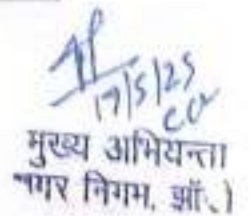 17/5/25
मुख्य अभियन्ता
नगर निगम, झाँ